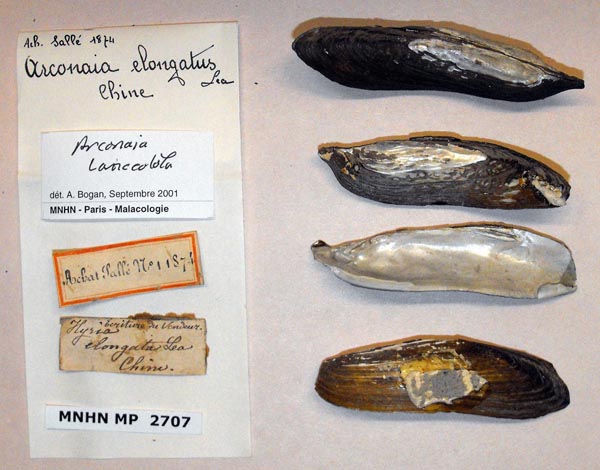 Ach. Sallé 1874
Arconaia elongatus
Lea
Chine
Arconaia
lanceolata
dét. A. Bogan, Septembre 2001
MNHN - Paris - Malacologie
Achat Sallé No 1 1874
écriture du Vendeur.
Hyria
elongata Lea
Chine.
MNHN MP 2707